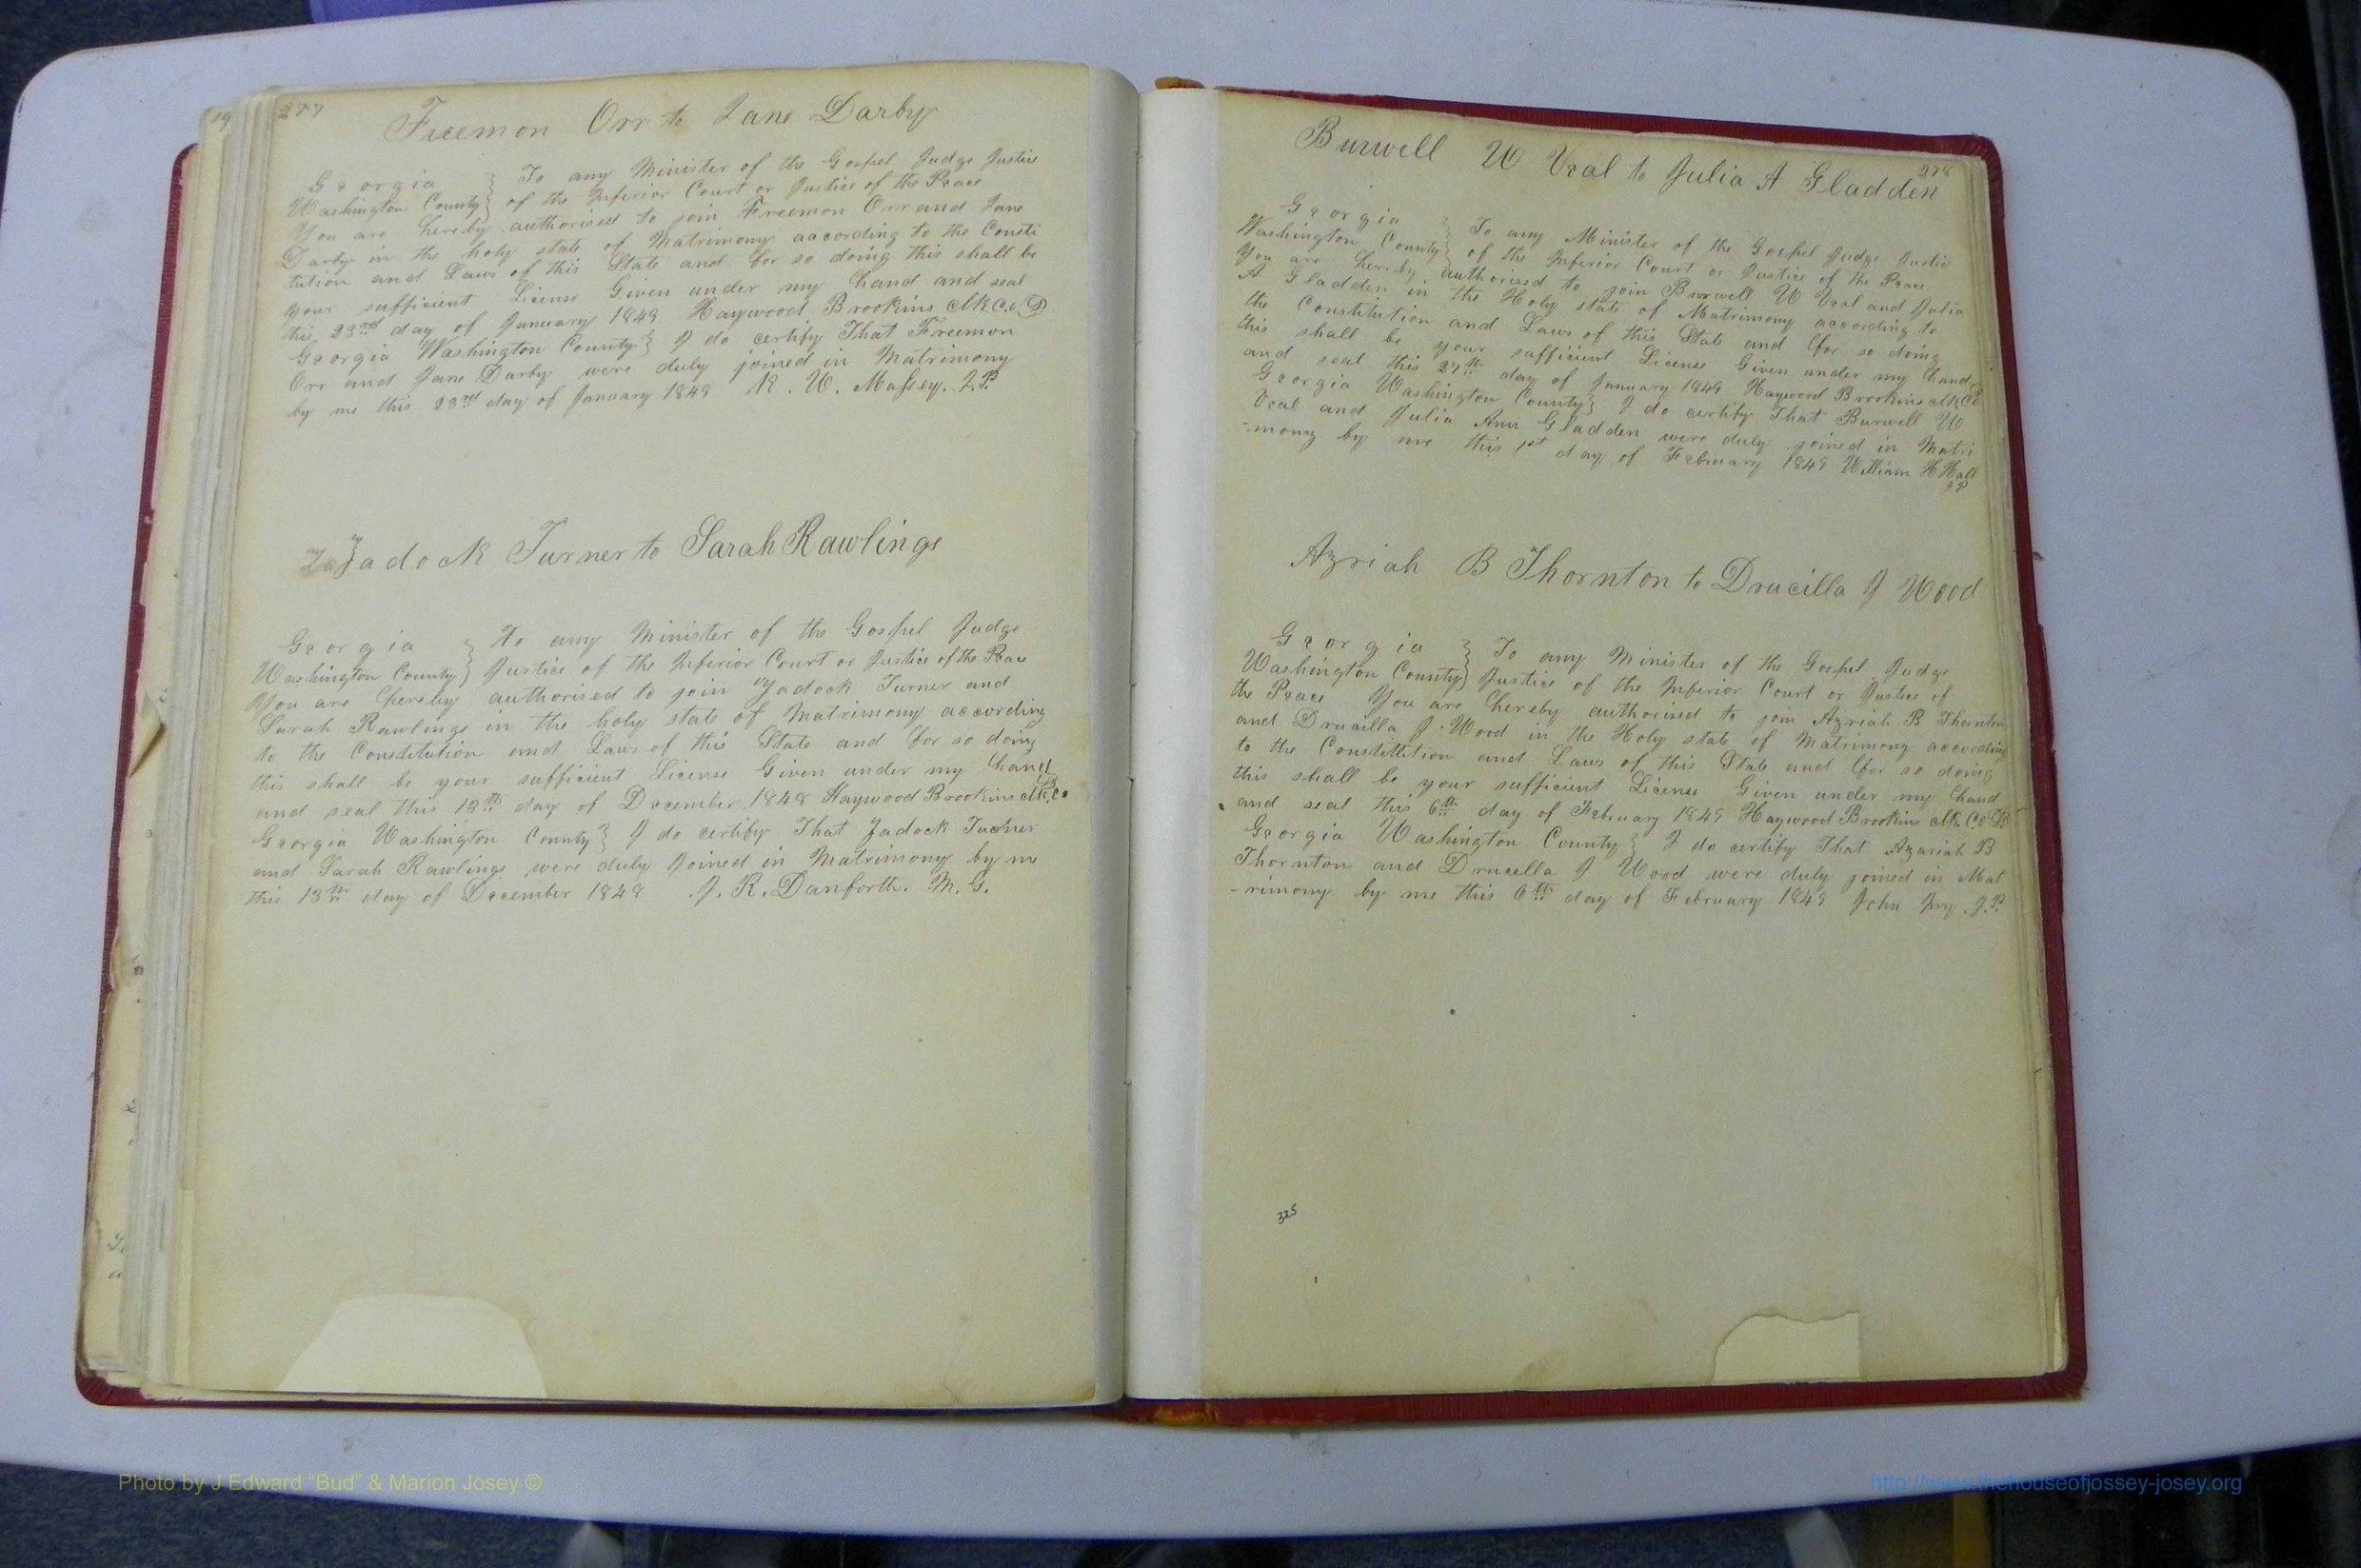 19
277
Freemon Orr to Jane Darby
Georgia } To any Minister of the Gospel Judge Justice
Washington County } of the Inferior Court or Justice of the Peace
You are hereby authorised to join Freemon Orr and Jane
Darby in the holy state of Matrimony according to the Consti
tution and Laws of this State and for so doing this shall be
your sufficient License Given under my hand and seal
this 23rd day of January 1849 Haywood Brookins Clk.C.O
Georgia Washington County } I do certify That Freemon
Orr and Jane Darby were duly joined in Matrimony
by me this 23rd day of January 1849 R. W. Massey. J.P.
Zadock Turner to Sarah Rawlings
Georgia } To any Minister of the Gospel Judge
Washington County } Justice of the Inferior Court or Justice of the Peace
You are hereby authorised to join Zadock Turner and
Sarah Rawlings in the holy state of Matrimony according
to the Constitution and Laws of this State and for so doing
this shall be your sufficient License Given under my hand
and seal this 13th day of December 1848 Haywood Brookins Clk.C.O
Georgia Washington County } I do certify That Zadock Turner
and Sarah Rawlings were duly Joined in Matrimony by me
this 13th day of December 1848 J. R. Danforth. M. G.
278
Burwell W Veal to Julia A Gladden
Georgia } To any Minister of the Gospel Judge Justice
Washington County } of the Inferior Court or Justice of the Peace
You are hereby authorised to join Burwell W Veal and Julia
A Gladden in the Holy state of Matrimony according to
the Constitution and Laws of this State and for so doing
this shall be your sufficient License Given under my hand
and seal this 27th day of January 1849 Haywood Brookins Clk.C.O
Georgia Washington County } I do certify That Burwell W
Veal and Julia Ann Gladden were duly joined in Matri
-mony by me this 1st day of February 1849 William H Hall
JP
Azriah B Thornton to Drucilla J Wood
Georgia } To any Minister of the Gospel Judge
Washington County } Justice of the Inferior Court or Justice of
the Peace You are hereby authorised to join Azriah B Thornton
and Drucilla J. Wood in the Holy state of Matrimony according
to the Constitution and Laws of this State and for so doing
this shall be your sufficient License Given under my hand
and seal this 6th day of February 1849 Haywood Brookins Clk C.O
Georgia Washington County } I do certify That Azariah B
Thornton and Drucella J Wood were duly joined in Mat
-rimony by me this 6th day of February 1849 John Ivy. J.P.
325
Photo by J Edward “Bud” & Marion Josey ©
http://www.thehouseofjossey-josey.org